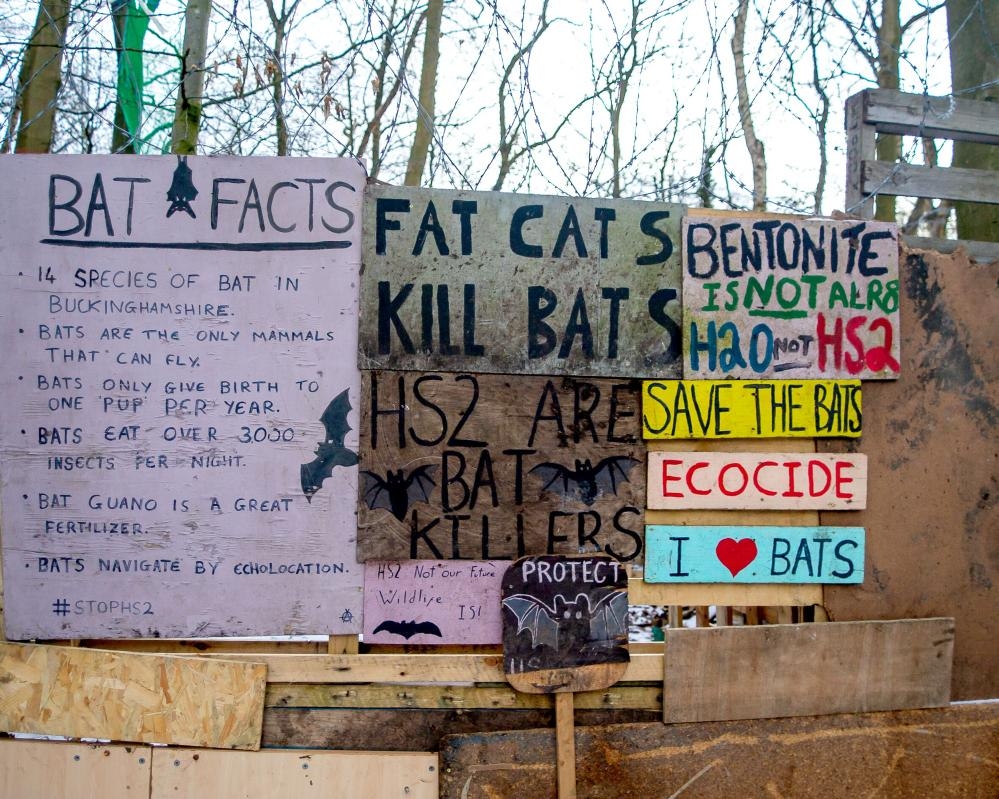 BAT FACTS
· 14 SPECIES OF BAT IN
BUCKINGHAMSHIRE.
· BATS ARE THE ONLY MAMMALS
THAT CAN FLY.
· BATS ONLY GIVE BIRTH TO
ONE 'PUP' PER YEAR.
· BATS EAT OVER 3000
INSECTS PER NIGHT.
· BAT GUANO IS A GREAT
FERTILIZER.
· BATS NAVIGATE BY ECHOLOCATION.
#STOPHS2
FAT CATS
KILL BATS
HS2 ARE
BAT
KILLERS
BENTONITE
IS NOT ALR8
H2O NOT HS2
SAVE THE BATS
ECOCIDE
I ♥ BATS
HS2 Not our Future
Wildlife
IS!
PROTECT
US